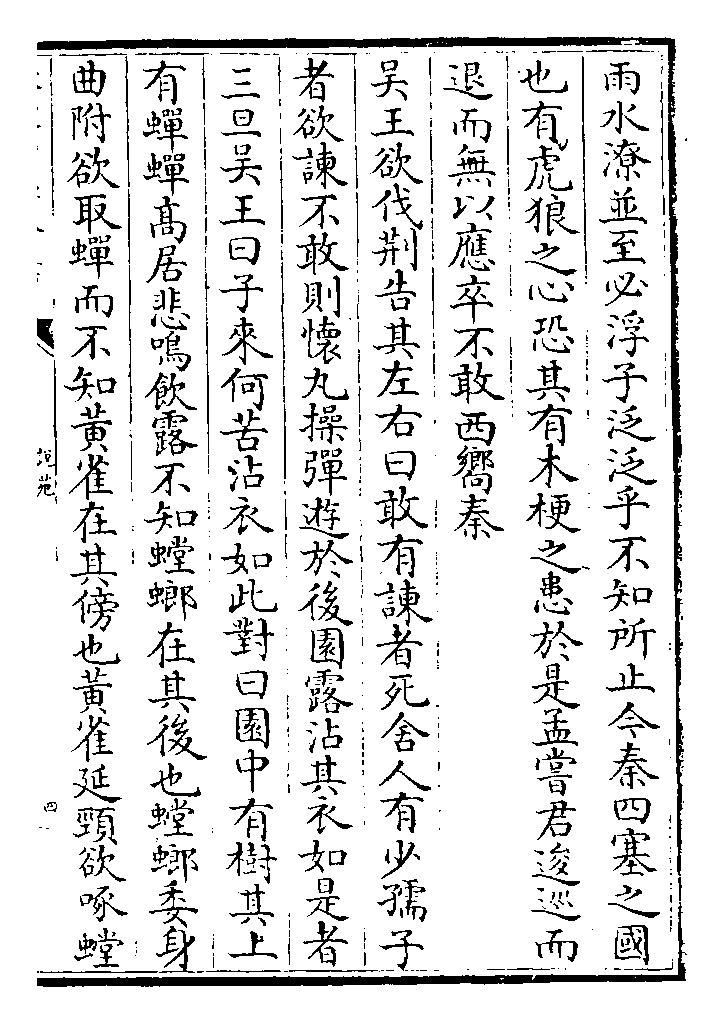 雨水潦並至必浮子泛泛乎不知所止今秦四塞之國
也有虎狼之心恐其有木梗之患於是孟嘗君逡巡而
退而無以應卒不敢西嚮秦
吴王欲伐荆告其左右曰敢有諫者死舍人有少孺子
者欲諫不敢則懐丸操彈遊於後園露沾其衣如是者
三旦吴王曰子來何苦沾衣如此對曰園中有樹其上
有蟬蟬髙居悲鳴飲露不知螳螂在其後也螳螂委身
曲附欲取蟬而不知黄雀在其傍也黄雀延頸欲啄螳
說苑
四